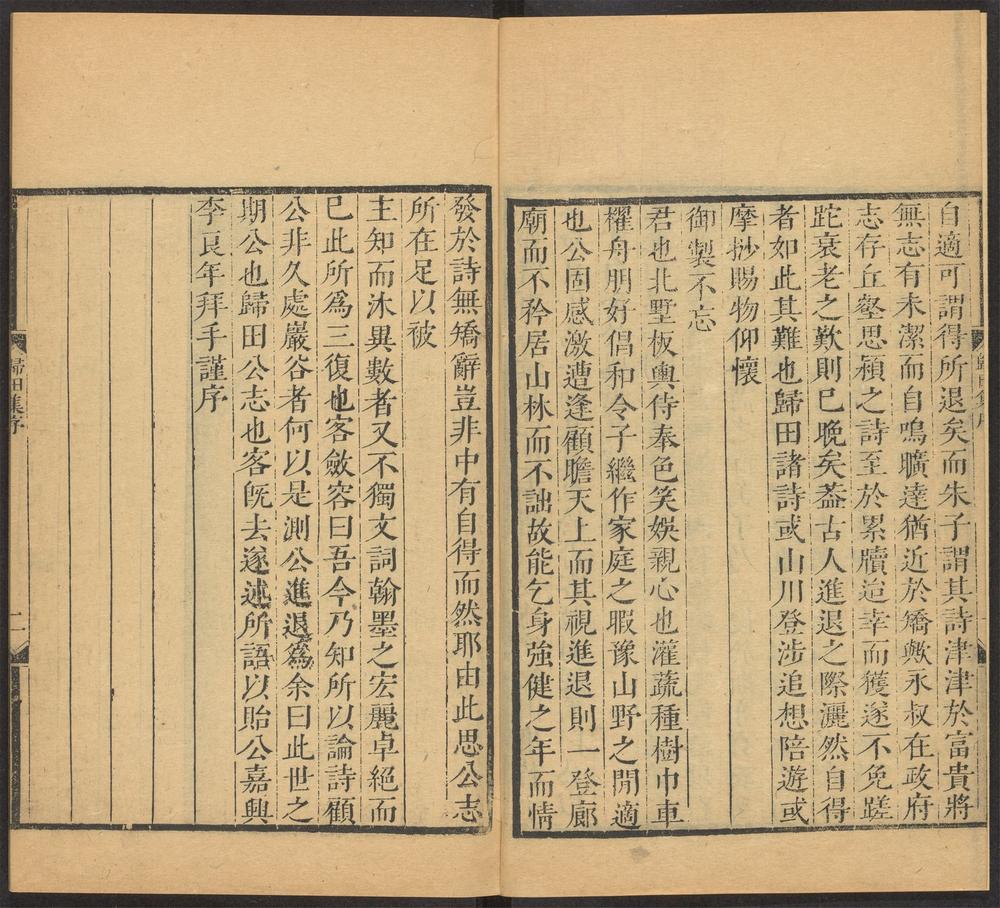 自適可謂得所退矣而朱子謂其詩津津於富貴將
無志有未潔而自鳴曠達猶近於矯歟永叔在政府
志存丘壑思潁之詩至於累牘迨幸而獲遂不免蹉
跎衰老之歎則已晚矣葢古人進退之際灑然自得
者如此其難也歸田諸詩或山川登涉追想陪遊或
摩挱賜物仰懷
御製不忘
君也北墅板輿侍奉色笑娛親心也灌蔬種樹巾車
櫂舟朋好倡和令子繼作家庭之暇豫山野之閒適
也公固感激遭逢顧瞻天上而其視進退則一登廊
廟而不矜居山林而不詘故能乞身強健之年而情
發於詩無矯辭豈非中有自得而然耶由此思公志
所在足以被
主知而沐異數者又不獨文詞翰墨之宏麗卓絕而
已此所為三復也客斂容曰吾今乃知所以論詩顧
公非久處巖谷者何以是測公進退為余曰此世之
期公也歸田公志也客旣去遂述所語以貽公嘉興
李良年拜手謹序
歸田集序
二